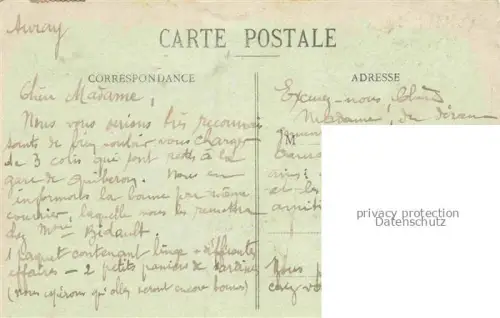 Auray
CARTE POSTALE
CORRESPONDANCE
ADRESSE
Chère Madame,
Nous vous serions très reconnais
sants de bien vouloir vous charger
de 3 colis qui sont restés à la
gare de Quiberon. Nous en
informons la bonne par même
courrier, laquelle nous les remettra
chez Mme Bidault.
1 paquet contenant linge + différentes
affaires – 2 petits paniers de sardines
(nous espérons qu'elles seront encore bonnes)
Excusez-nous, Chère
Madame, du déran
M
et les
amitié
Nous
privacy protection
Datenschutz